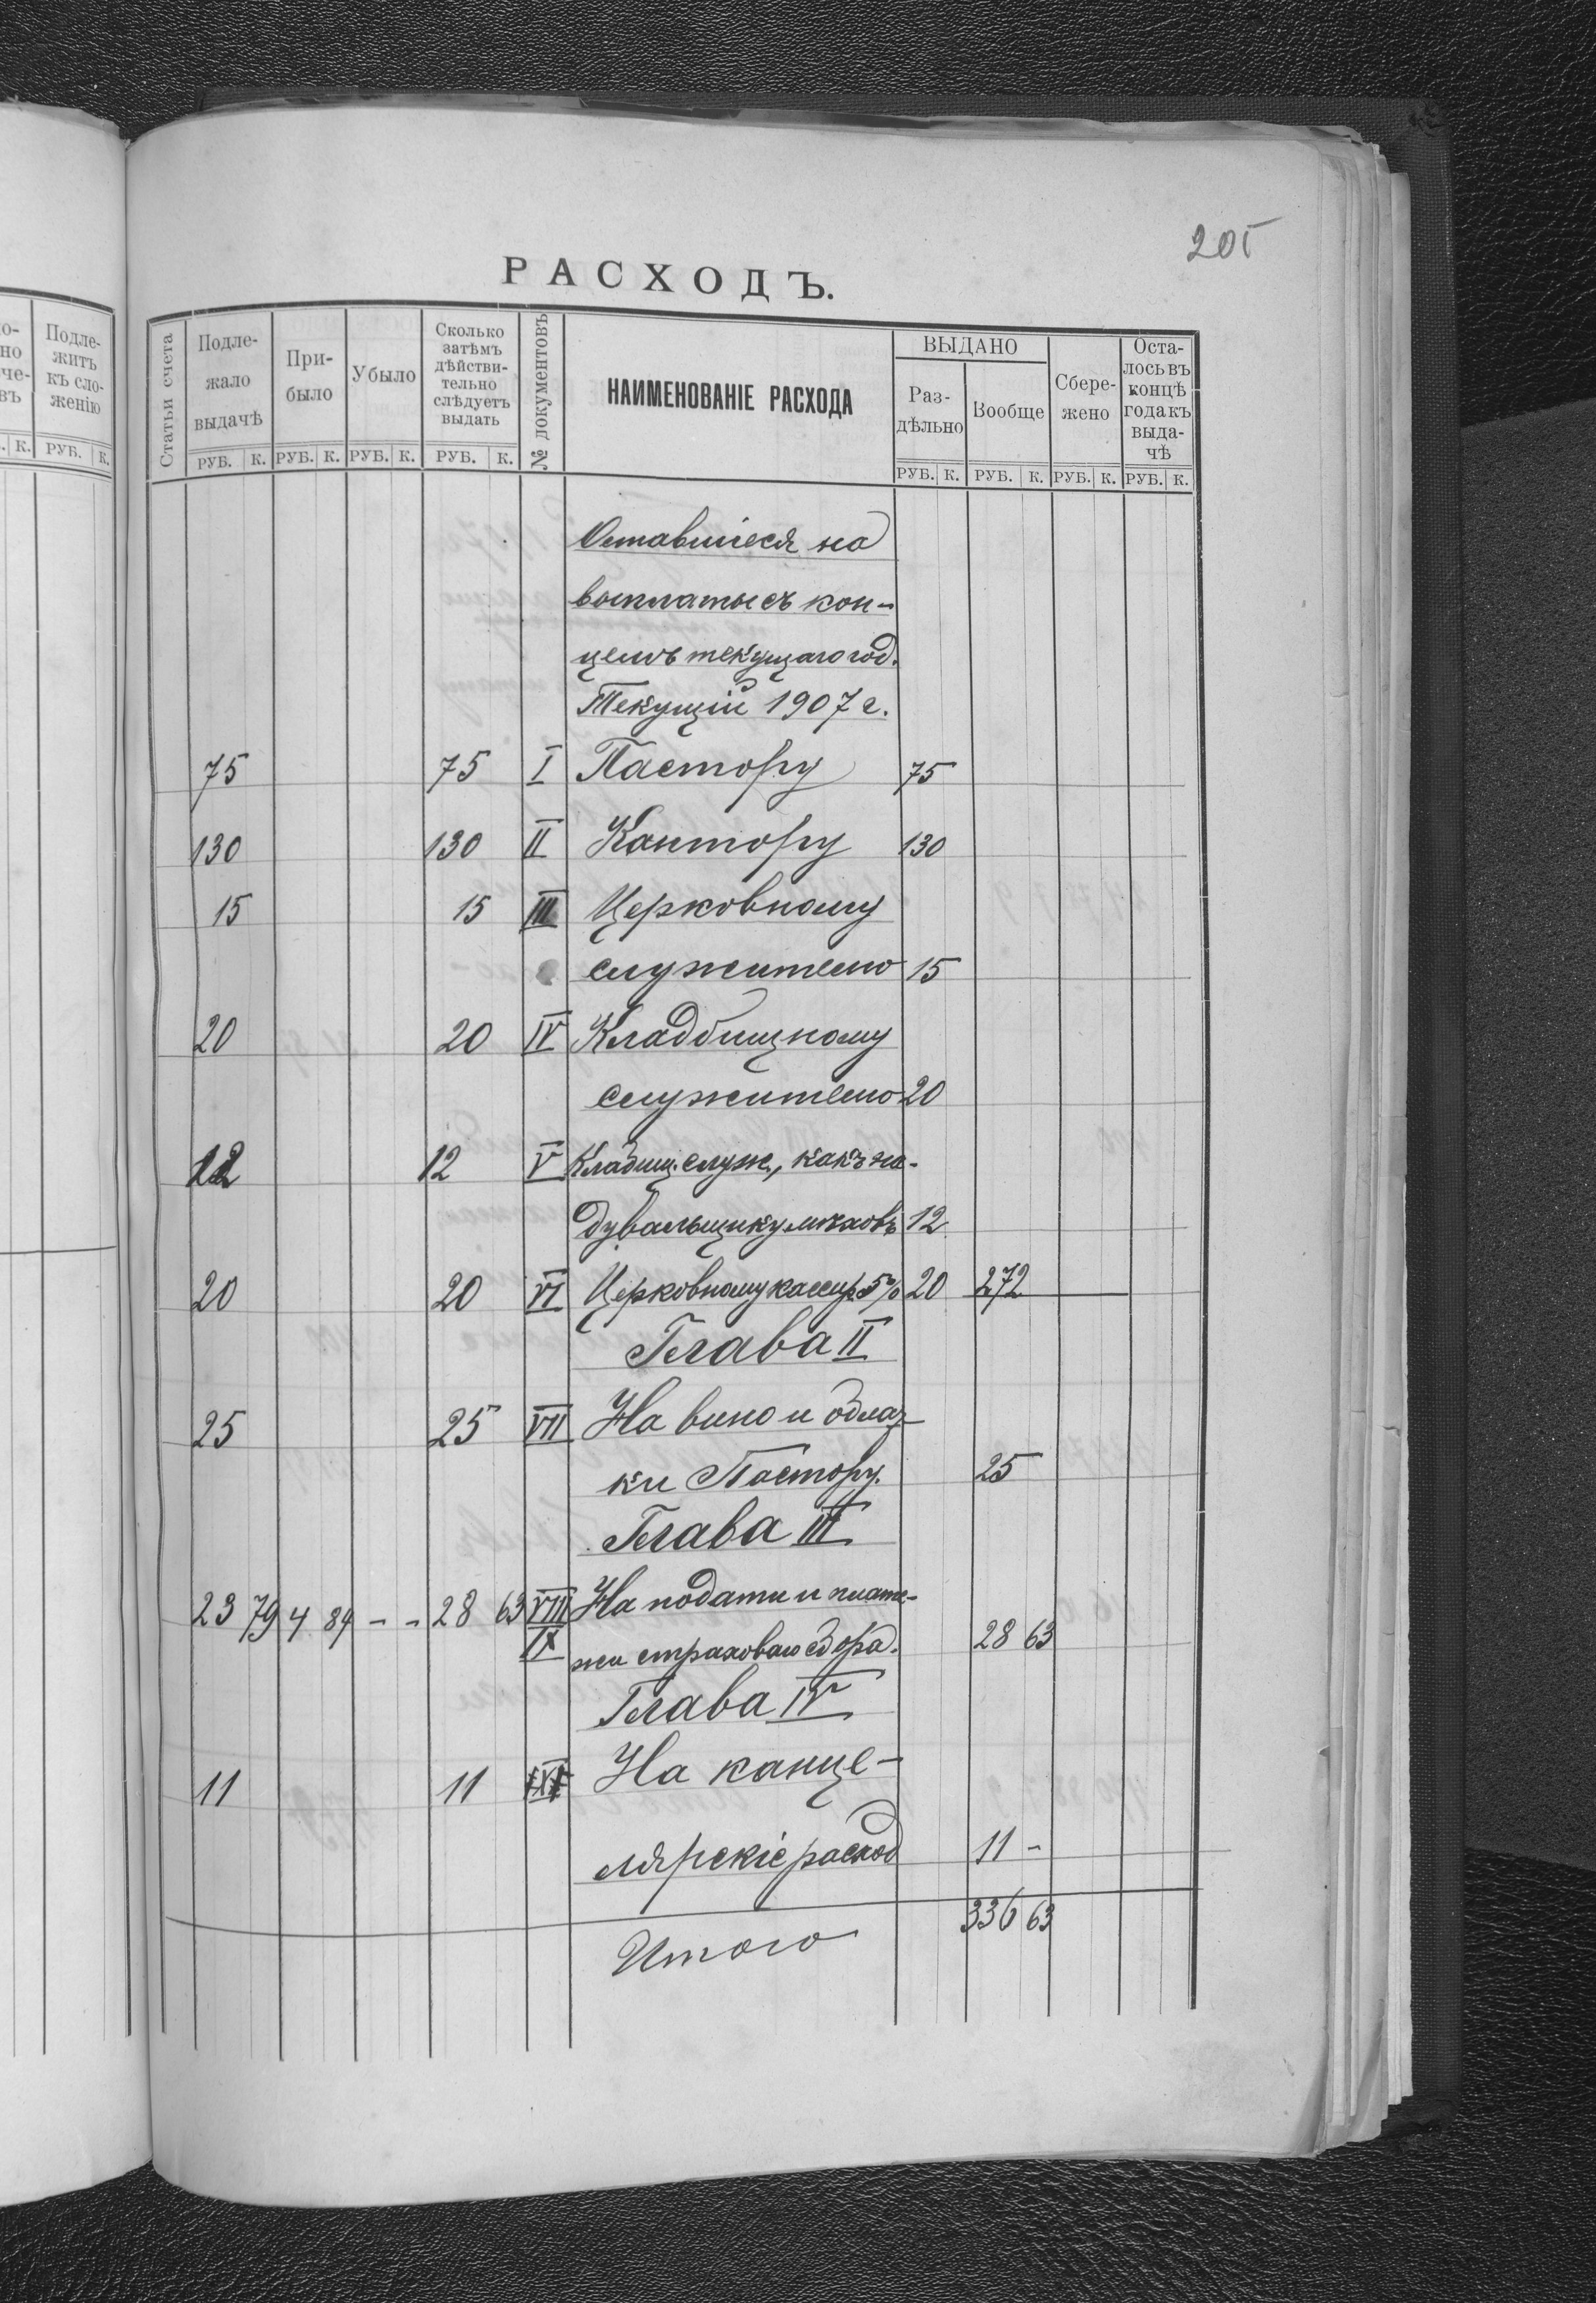 205
РАСХОДЪ.
Статьи счета | Подлежало выдачѣ | Прибыло | Убыло | Сколько затѣмъ дѣйствительно слѣдуетъ выдать | № документовъ | НАИМЕНОВАНІЕ РАСХОДА | ВЫДАНО Раздѣльно | Вообще | Сбережено | Осталось въ концѣ года къ выдачѣ
РУБ. К. РУБ. К. РУБ. К. РУБ. К. РУБ. К. РУБ. К. РУБ. К. РУБ. К.
Оставшіеся на
выплаты съ кон-
цемъ текущаго год.
Текущій 1907 г.
75 75 I Пастору 75
130 130 II Кантору 130
15 15 III Церковному
служителю 15
20 20 IV Кладбищному
служителю 20
12 12 V Кладбищ. служ., какъ на-
дувальщику мѣховъ 12
20 20 VI Церковному кассир. 5% 20 272
Глава II
25 25 VII На вино и облат-
ки Пастору. 25
Глава III
23 79 4 84 - - 28 63 VIII На подати и плате-
IX жи страховаго сбора. 28 63
Глава IV
11 11 На канце-
лярскіе расход 11 -
Итого 336 63
Подле-
житъ
къ сло-
женію
К. РУБ. К.